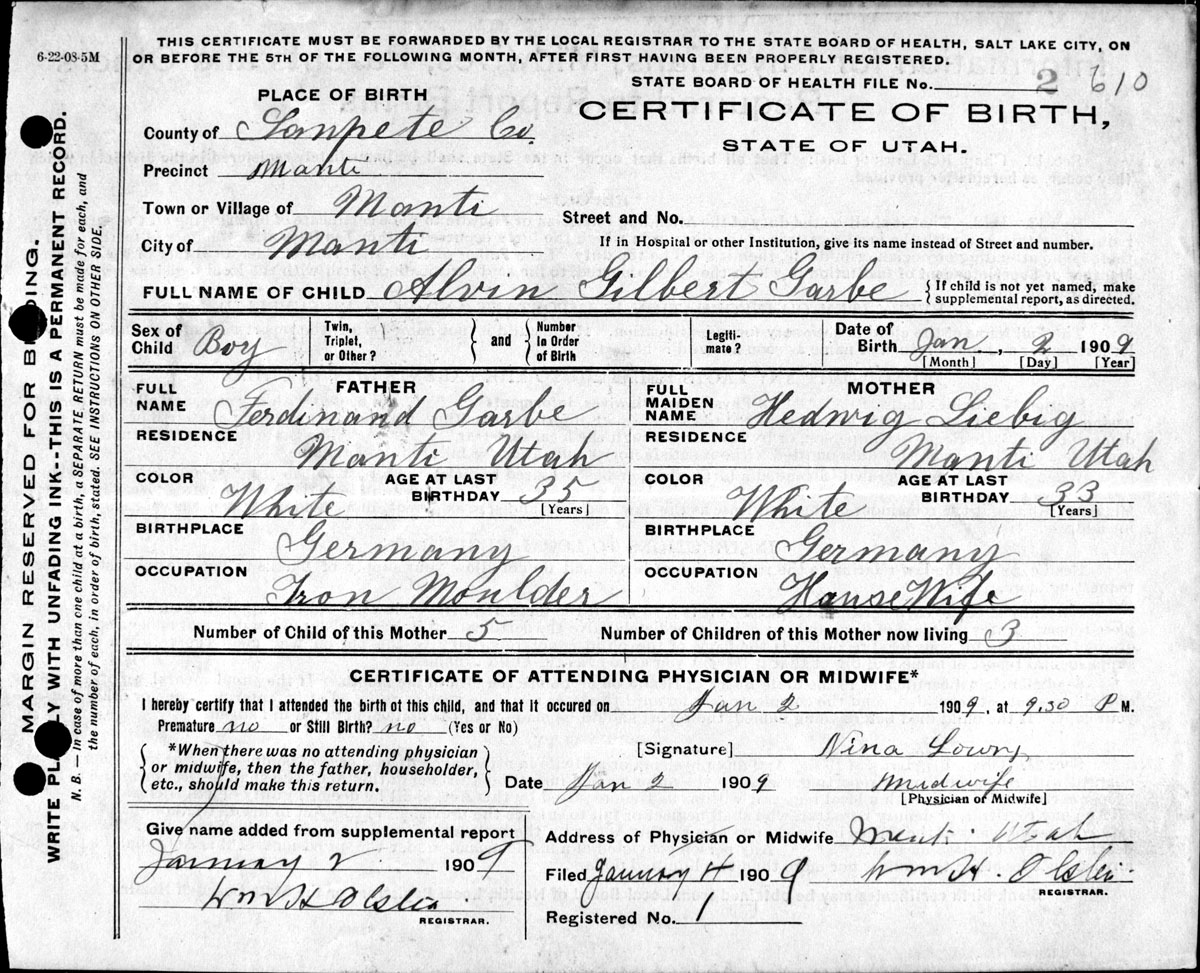 6-22-08-5M
THIS CERTIFICATE MUST BE FORWARDED BY THE LOCAL REGISTRAR TO THE STATE BOARD OF HEALTH, SALT LAKE CITY, ON
OR BEFORE THE 5TH OF THE FOLLOWING MONTH, AFTER FIRST HAVING BEEN PROPERLY REGISTERED.
STATE BOARD OF HEALTH FILE No. 2 610
PLACE OF BIRTH
CERTIFICATE OF BIRTH,
STATE OF UTAH.
County of Sanpete Co.
Precinct Manti
Town or Village of Manti
Street and No.
City of Manti
If in Hospital or other Institution, give its name instead of Street and number.
FULL NAME OF CHILD Alvin Gilbert Garbe
{If child is not yet named, make
supplemental report, as directed.
Sex of Child Boy
Twin, Triplet, or Other?
} and {
Number In Order of Birth
Legiti-mate?
Date of Birth Jan. 2 1909
[Month] [Day] [Year]
FATHER
FULL NAME Ferdinand Garbe
RESIDENCE Manti Utah
COLOR White
AGE AT LAST BIRTHDAY 35 [Years]
BIRTHPLACE Germany
OCCUPATION Iron Moulder
MOTHER
FULL MAIDEN NAME Hedwig Liebig
RESIDENCE Manti Utah
COLOR White
AGE AT LAST BIRTHDAY 33 [Years]
BIRTHPLACE Germany
OCCUPATION HouseWife
Number of Child of this Mother 5
Number of Children of this Mother now living 3
CERTIFICATE OF ATTENDING PHYSICIAN OR MIDWIFE*
I hereby certify that I attended the birth of this child, and that it occured on Jan 2 1909, at 9.30 P M.
Premature no or Still Birth? no (Yes or No)
{*When there was no attending physician
or midwife, then the father, householder,
etc., should make this return.}
[Signature] Nina Lowry
Date Jan 2 1909
Midwife
[Physician or Midwife]
Give name added from supplemental report
January 2 1909
Wm H Olsen
REGISTRAR.
Address of Physician or Midwife Manti Utah
Filed January 4 1909 Wm H. Olsen
REGISTRAR.
Registered No. 1
MARGIN RESERVED FOR BINDING.
WRITE PLAINLY WITH UNFADING INK--THIS IS A PERMANENT RECORD.
N. B. — In case of more than one child at a birth, a SEPARATE RETURN must be made for each, and
the number of each, in order of birth, stated. SEE INSTRUCTIONS ON OTHER SIDE.